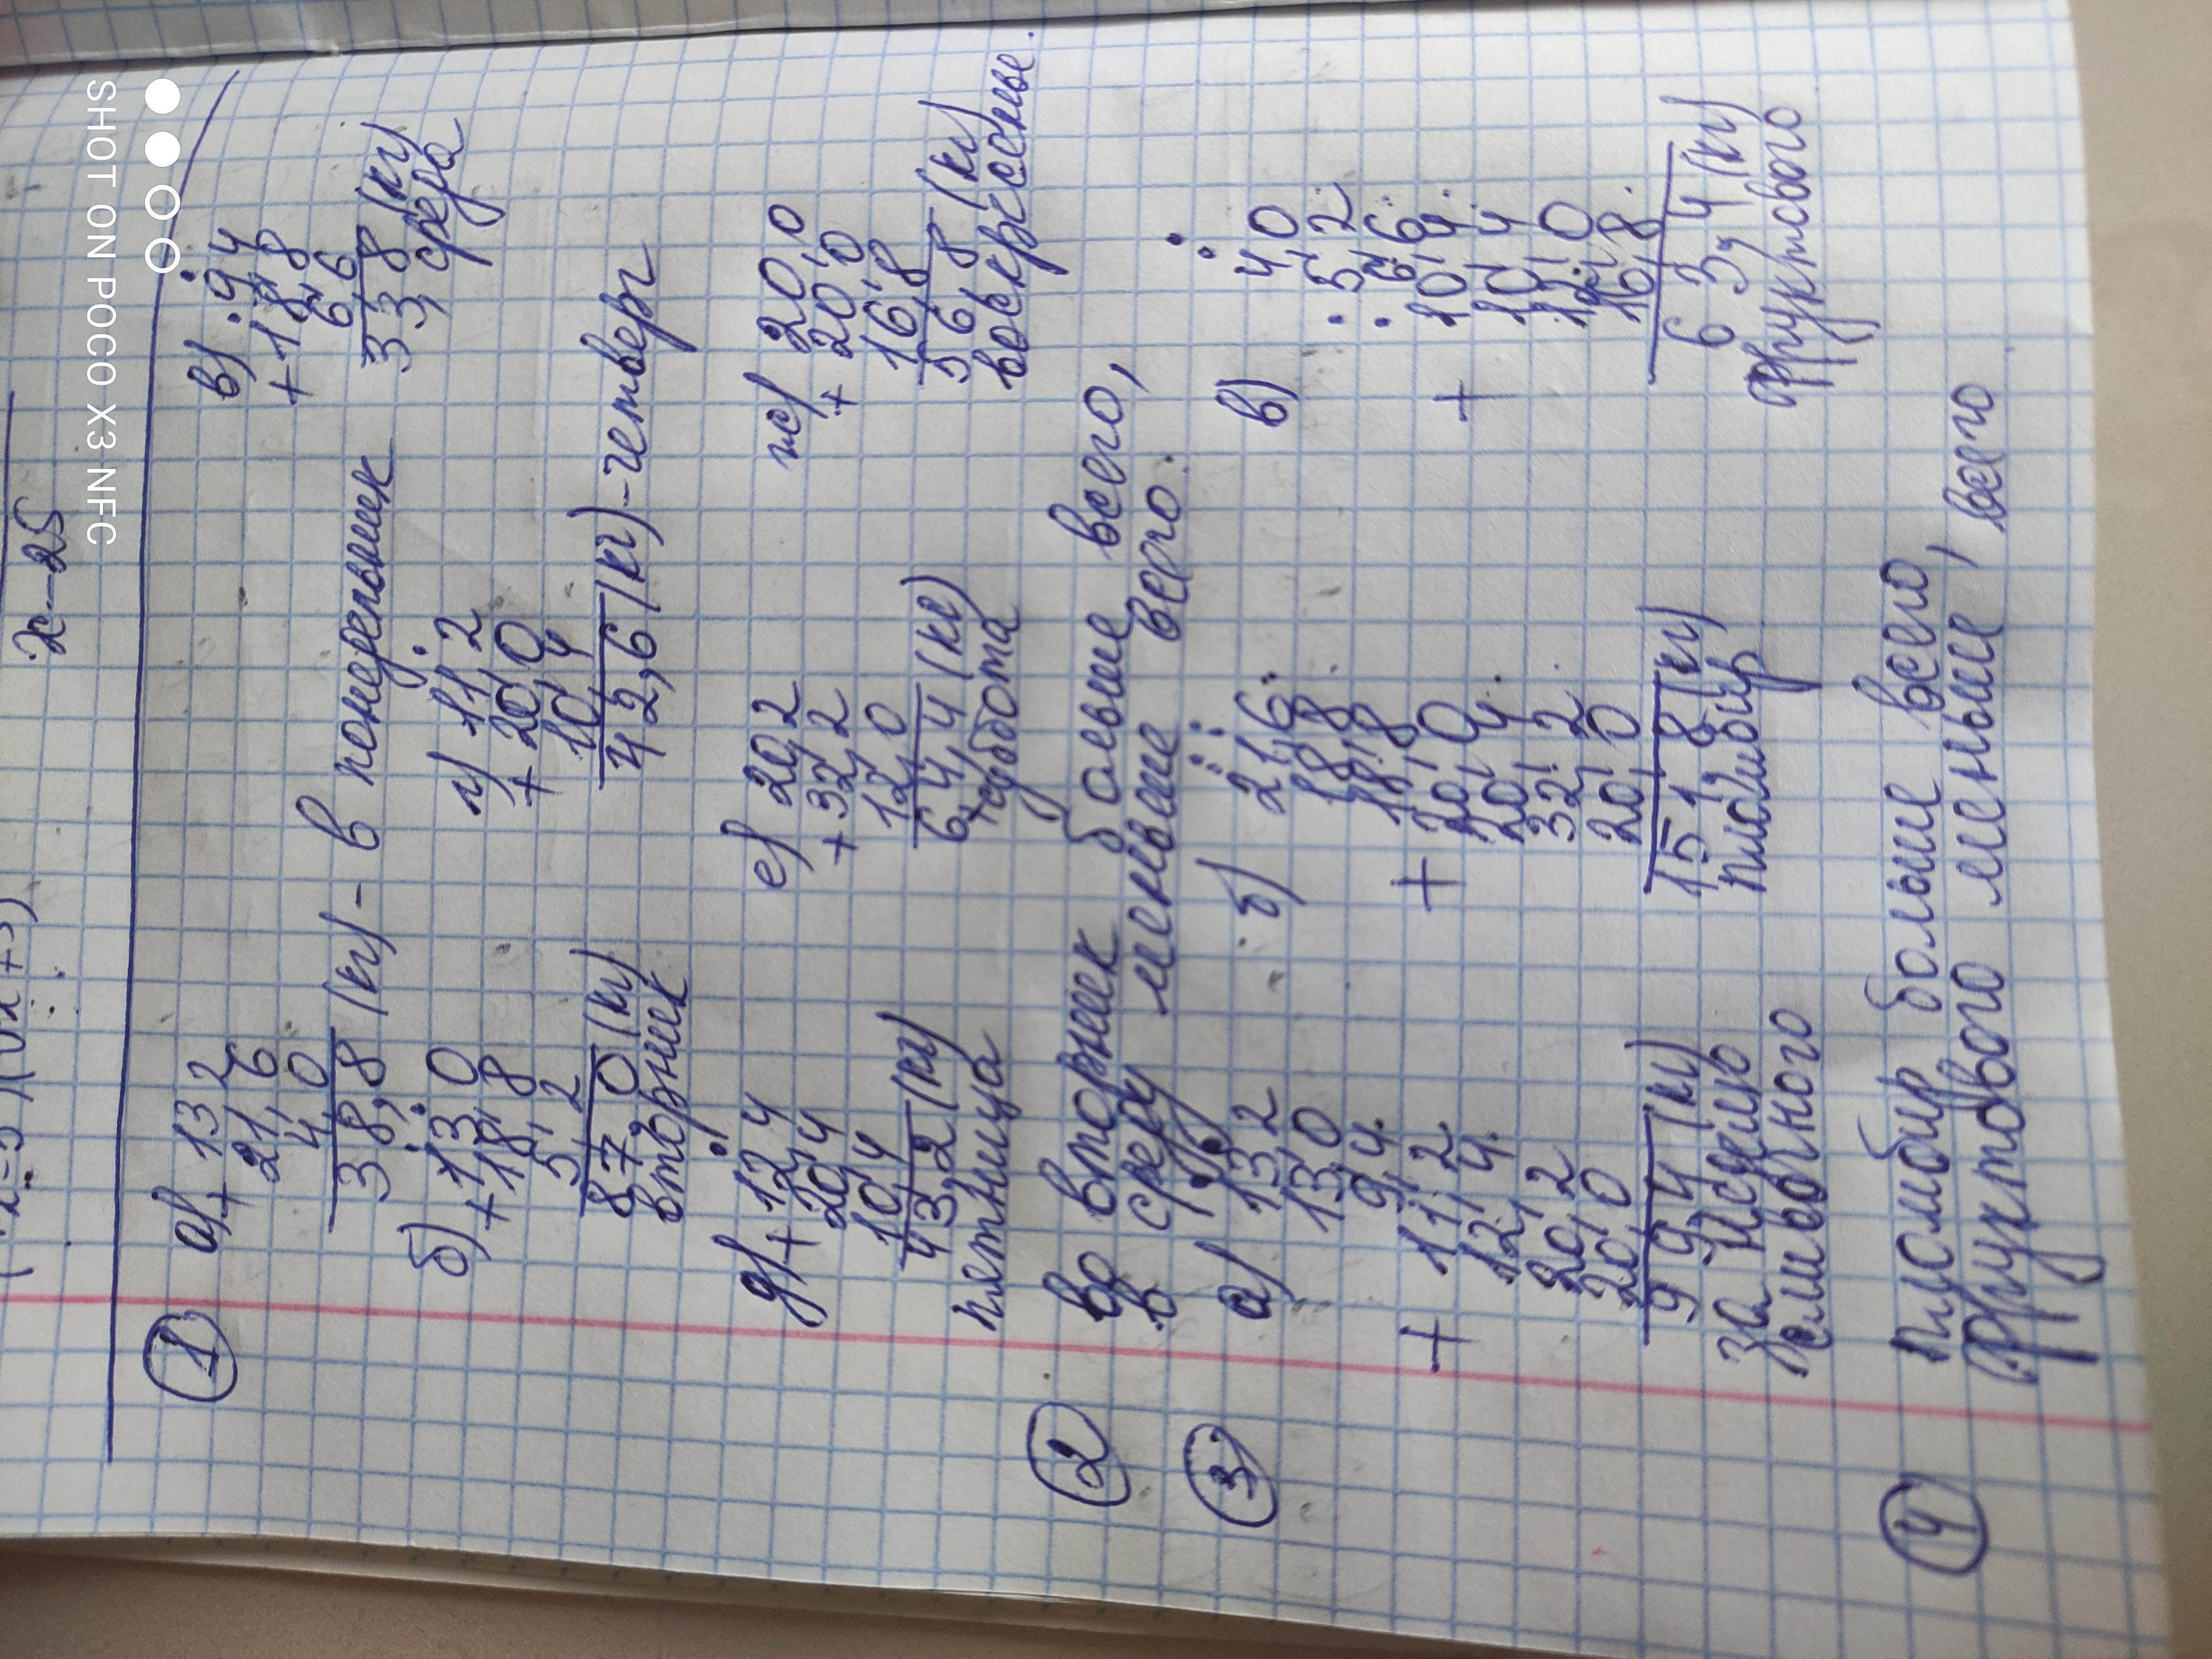 x-25
1
а) + 13,2
21,6
4,0
38,8 (кг) - в понедельник
б) + 13,0
18,8
5,2
87,0 (кг)
вторник
в) 9,4
+ 18,8
6,6
33,8 (кг)
среда
г) 11,2
+ 20,0
10,4
42,6 (кг) - четверг
д) + 12,4
20,4
10,4
43,2 (кг)
пятница
е) 20,2
+ 32,2
12,0
64,4 (кг)
суббота
ж) 20,0
+ 20,0
16,8
56,8 (кг)
воскресенье.
2
Во вторник больше всего,
в среду меньше всего.
3
а) 13,2
13,0
9,4
+ 11,2
12,4
20,2
20,0
99,4 (кг)
за неделю
сливочного
б) 21,6
18,8
18,8
+ 20,0
20,4
32,2
20,0
151,8 (кг)
пломбир
в) 4,0
5,2
6,6
+ 10,4
10,4
12,0
16,8
63,4 (кг)
фруктового
4
пломбир больше всего,
фруктового меньше, всего
SHOT ON POCO X3 NFC